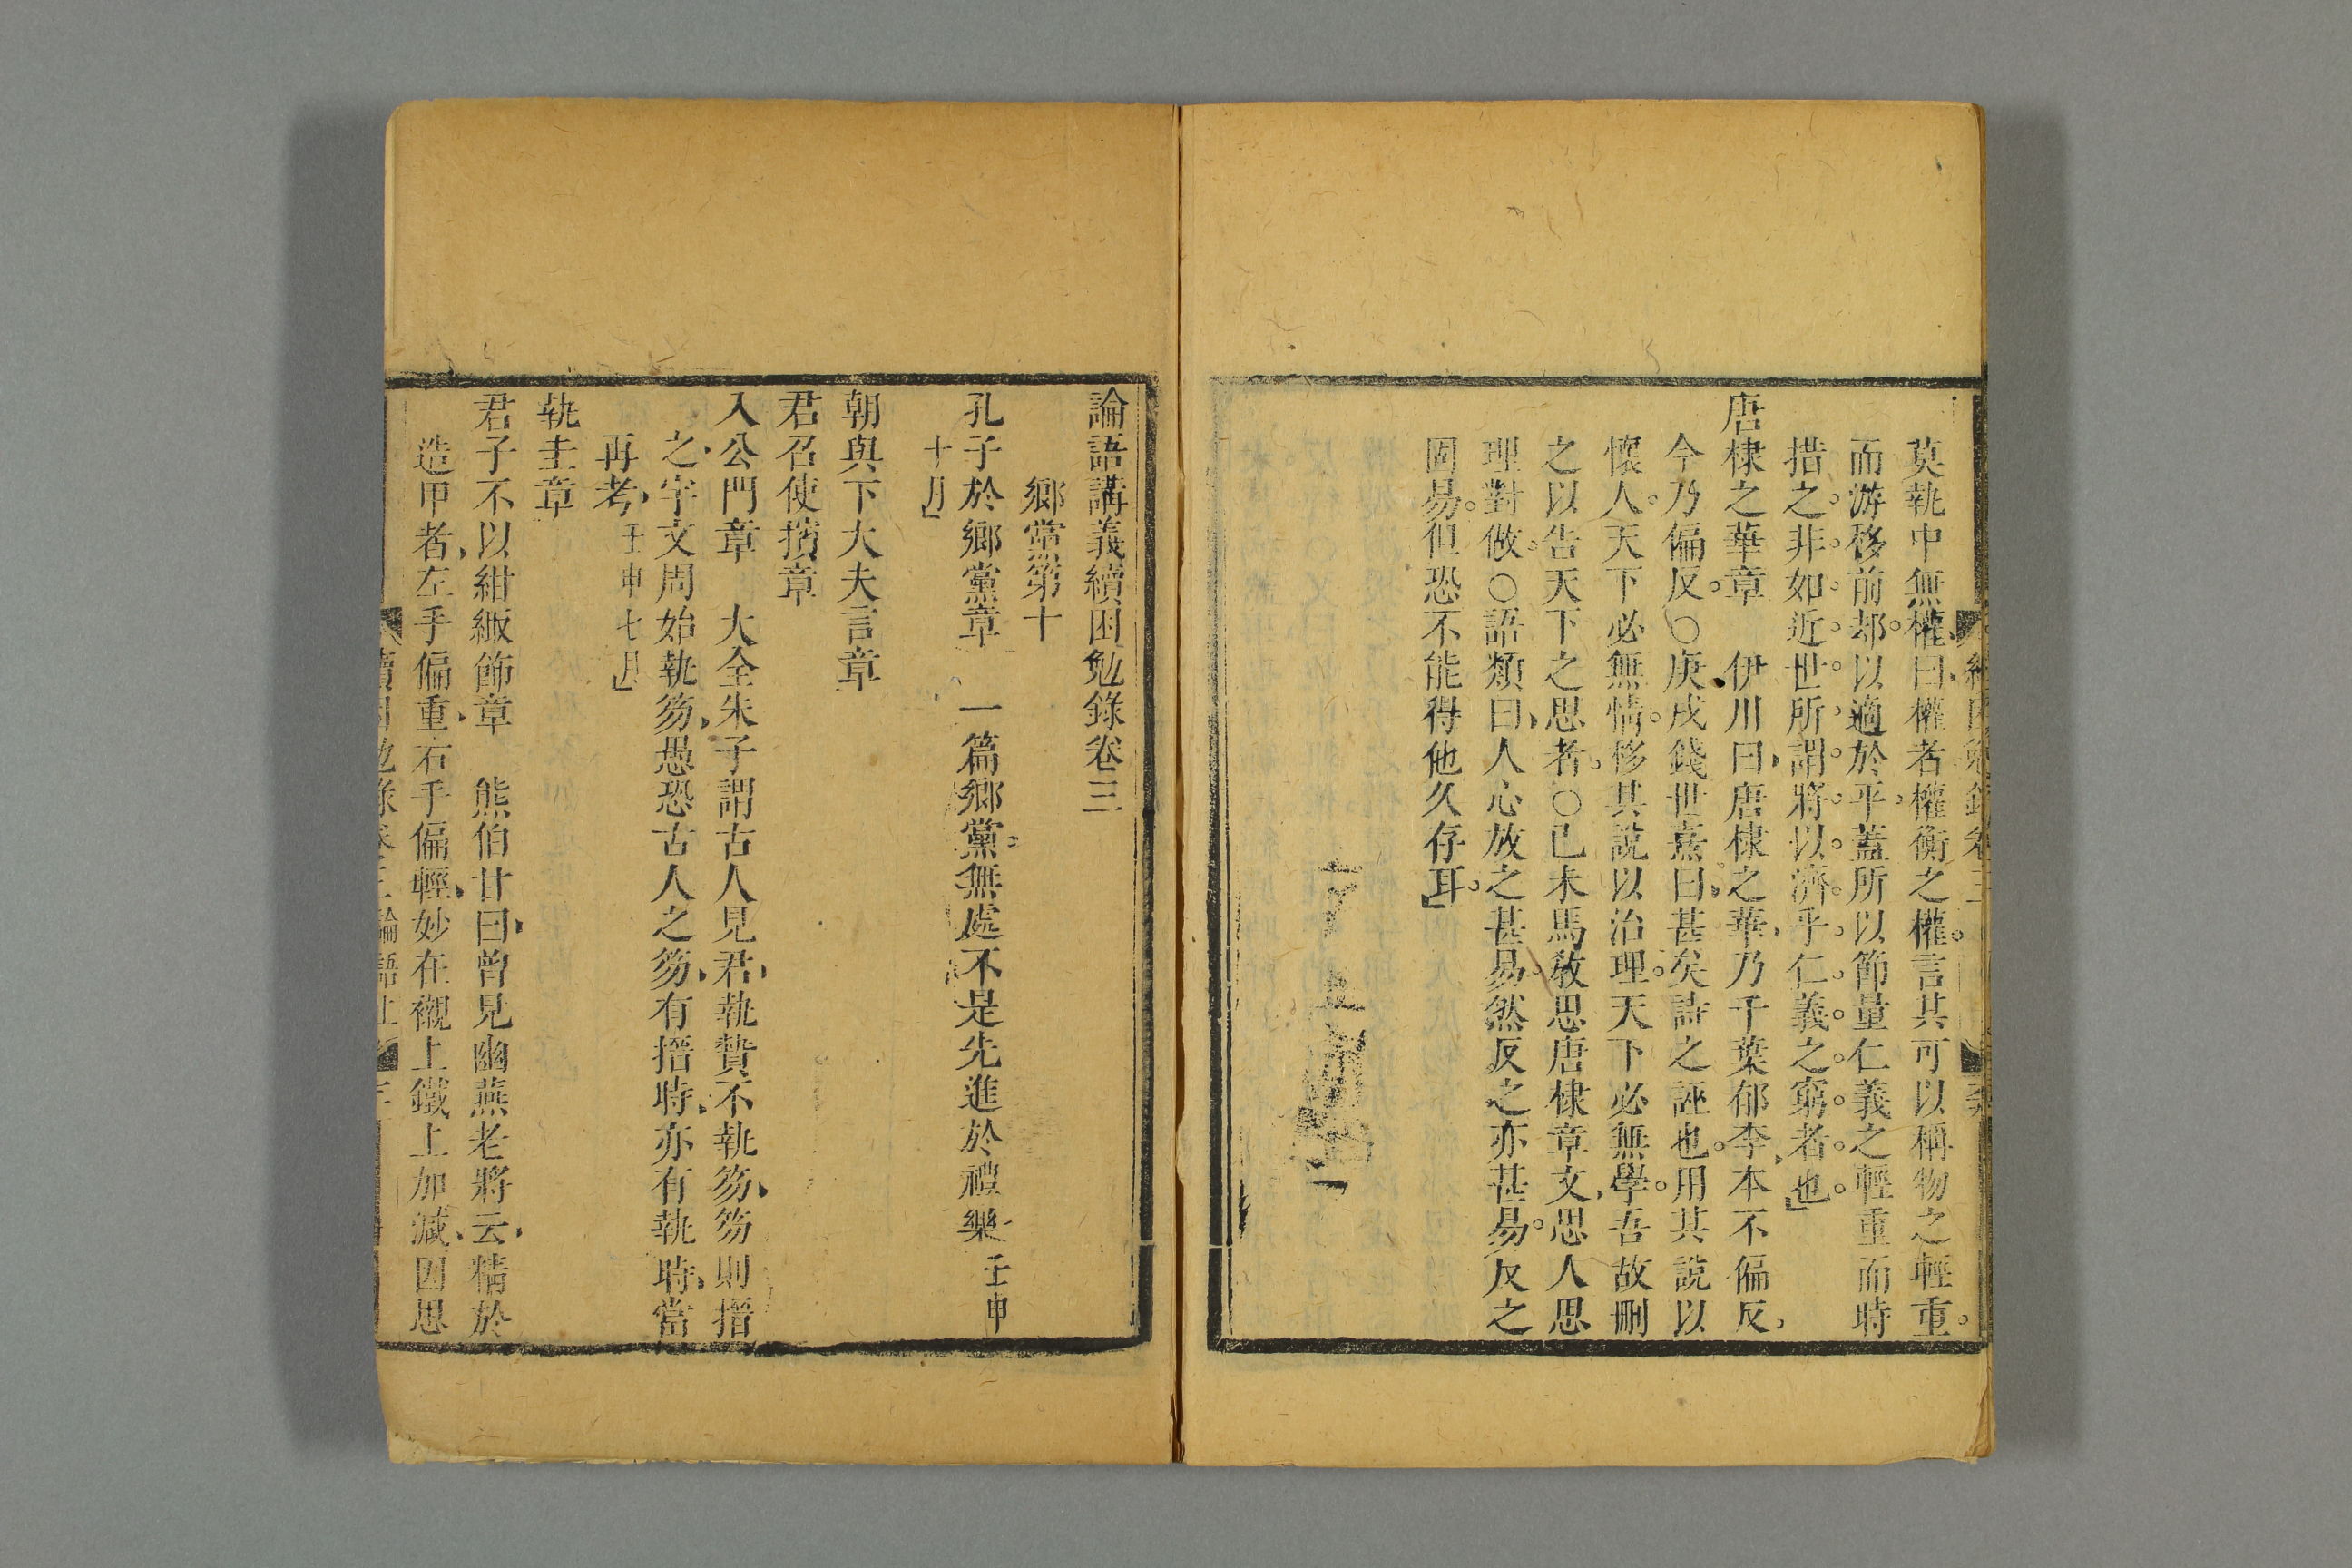 莫執中無權曰權者權衡之權。言其可以稱物之輕重。
而游移前却。以適於平。蓋所以節量仁義之輕重而時
措之。非如近世所謂將以濟乎仁義之窮者也」
唐棣之華章　伊川曰唐棣之華乃千葉郁李本不偏反、
今乃偏反。○庚戌錢世熹曰甚矣詩之誣也。用其說以
懷人。天下必無情。移其說以治理。天下必無學。吾故刪
之以告天下之思者。○己未馬敘思唐棣章文、思人思
理對做。○語類曰、人心放之甚易。然反之亦甚易。反之
固易。但恐不能得他久存耳」
論語講義續困勉錄卷三
鄉黨第十
孔子於鄉黨章　一篇鄉黨。無處不是先進於禮樂壬申
十月」
朝與下大夫言章
君召使擯章
入公門章　大全朱子謂古人見君、執贄不執笏、笏則搢
之、宇文周始執笏、愚恐古人之笏、有搢時、亦有執時、當
再考、壬申七月」
執圭章
君子不以紺緅飾章　熊伯甘曰、曾見幽燕老將云、精於
造甲者、左手偏重、右手偏輕、妙在襯上鐵上加減、因思
續困勉錄卷三論語上